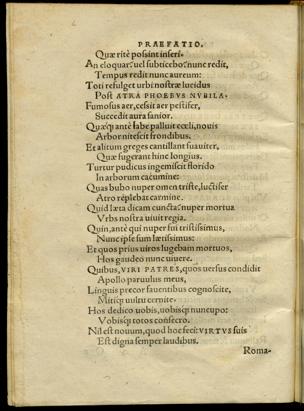 PRAEFATIO.
Quæ ritè possint inseri.
An eloquar? uel subticebo? nunc redit,
Tempus redit nunc aureum:
Toti refulget urbi nostræ lucidus
Post ATRA PHOEBVS NVBILA.
Fumosus aer, cessit aer pestifer,
Succedit aura sanior.
Quæq; antè labe palluit cœli, nouis
Arbor nitescit frondibus.
Et alitum greges cantillant suauiter,
Quæ fugerant hinc longius.
Turtur pudicus ingemiscit florido
In arborum cacumine:
Quas bubo nuper omen triste, luctifer
Atro replebat carmine.
Quid læta dicam cuncta? nuper mortua
Vrbs nostra uiuit regia.
Quin, antè qui nuper fui tristissimus,
Nunc ipse sum lætissimus:
Et quos prius uiros lugebam mortuos,
Hos gaudeo nunc uiuere.
Quibus, VIRI PATRES, quos uersus condidit
Apollo paruulus meus,
Linguis precor fauentibus cognoscite,
Mitiq; uultu cernite.
Hos dedico uobis, uobisq; nuncupo:
Vobisq; totos consecro.
Nil est nouum, quod hoc feci: VIRTVS suis
Est digna semper laudibus.
Roma-